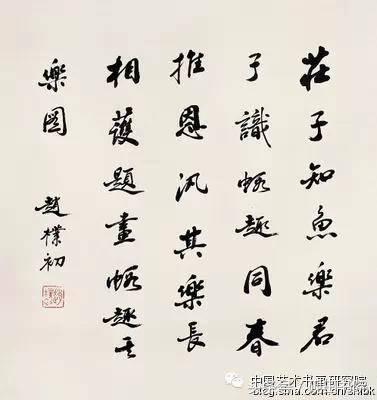 莊子知魚樂君
子識蝦趣同春
推恩汎其樂長
相護題畫蝦趣其
樂圖
趙樸初
中国艺术书画研究院
blog.sina.com.cn/shibk